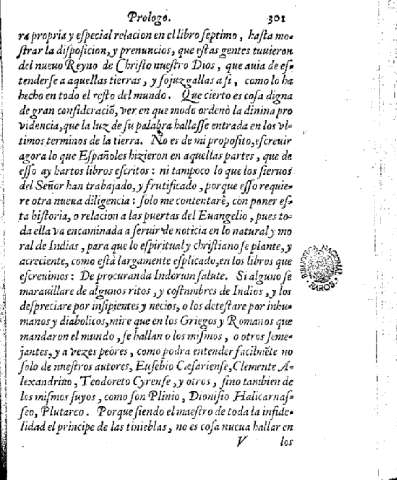 Prologo. 301
ra propria y especial relacion en el libro septimo, hasta mo-
strar la disposicion, y prenuncios, que estas gentes tuuieron
del nueuo Reyno de Christo nuestro Dios, que auia de es-
tenderse a aquellas tierras, y sojuzgallas a si, como lo ha
hecho en todo el resto del mundo. Que cierto es cosa digna
de gran consideraciō, ver en que modo ordenò la diuina pro
uidencia, que la luz de su palabra hallasse entrada en los vl-
timos terminos de la tierra. No es de mi proposito, escreuir
agora lo que Españoles hizieron en aquellas partes, que de
esso ay hartos libros escritos: ni tampoco lo que los sieruos
del Señor han trabajado, y frutificado, porque esso requie-
re otra nueua diligencia: solo me contentarè, con poner es-
ta historia, o relacion a las puertas del Euangelio, pues to-
da ella va encaminada a seruir de noticia en lo natural y mo
ral de Indias, para que lo espiritual y christiano se plante, y
acreciente, como està largamente esplicado, en los libros que
escreuimos: De procuranda Indorum salute. Si alguno se
marauillare de algunos ritos, y costumbres de Indios, y los
despreciare por insipientes y necios, o los detestare por inhu-
manos y diabolicos, mire que en los Griegos y Romanos que
mandaron el mundo, se hallan o los mismos, o otros seme-
jantes, y a vezes peores, como podra entender facilmēte no
solo de nuestros autores, Eusebio Cæsariense, Clemente A-
lexandrino, Teodoreto Cyrense, y otros, sino tambien de
los mismos suyos, como son Plinio, Dionisio Halicarnas-
seo, Plutarco. Porque siendo el maestro de toda la infide-
lidad el principe de las tinieblas, no es cosa nueua hallar en
V los